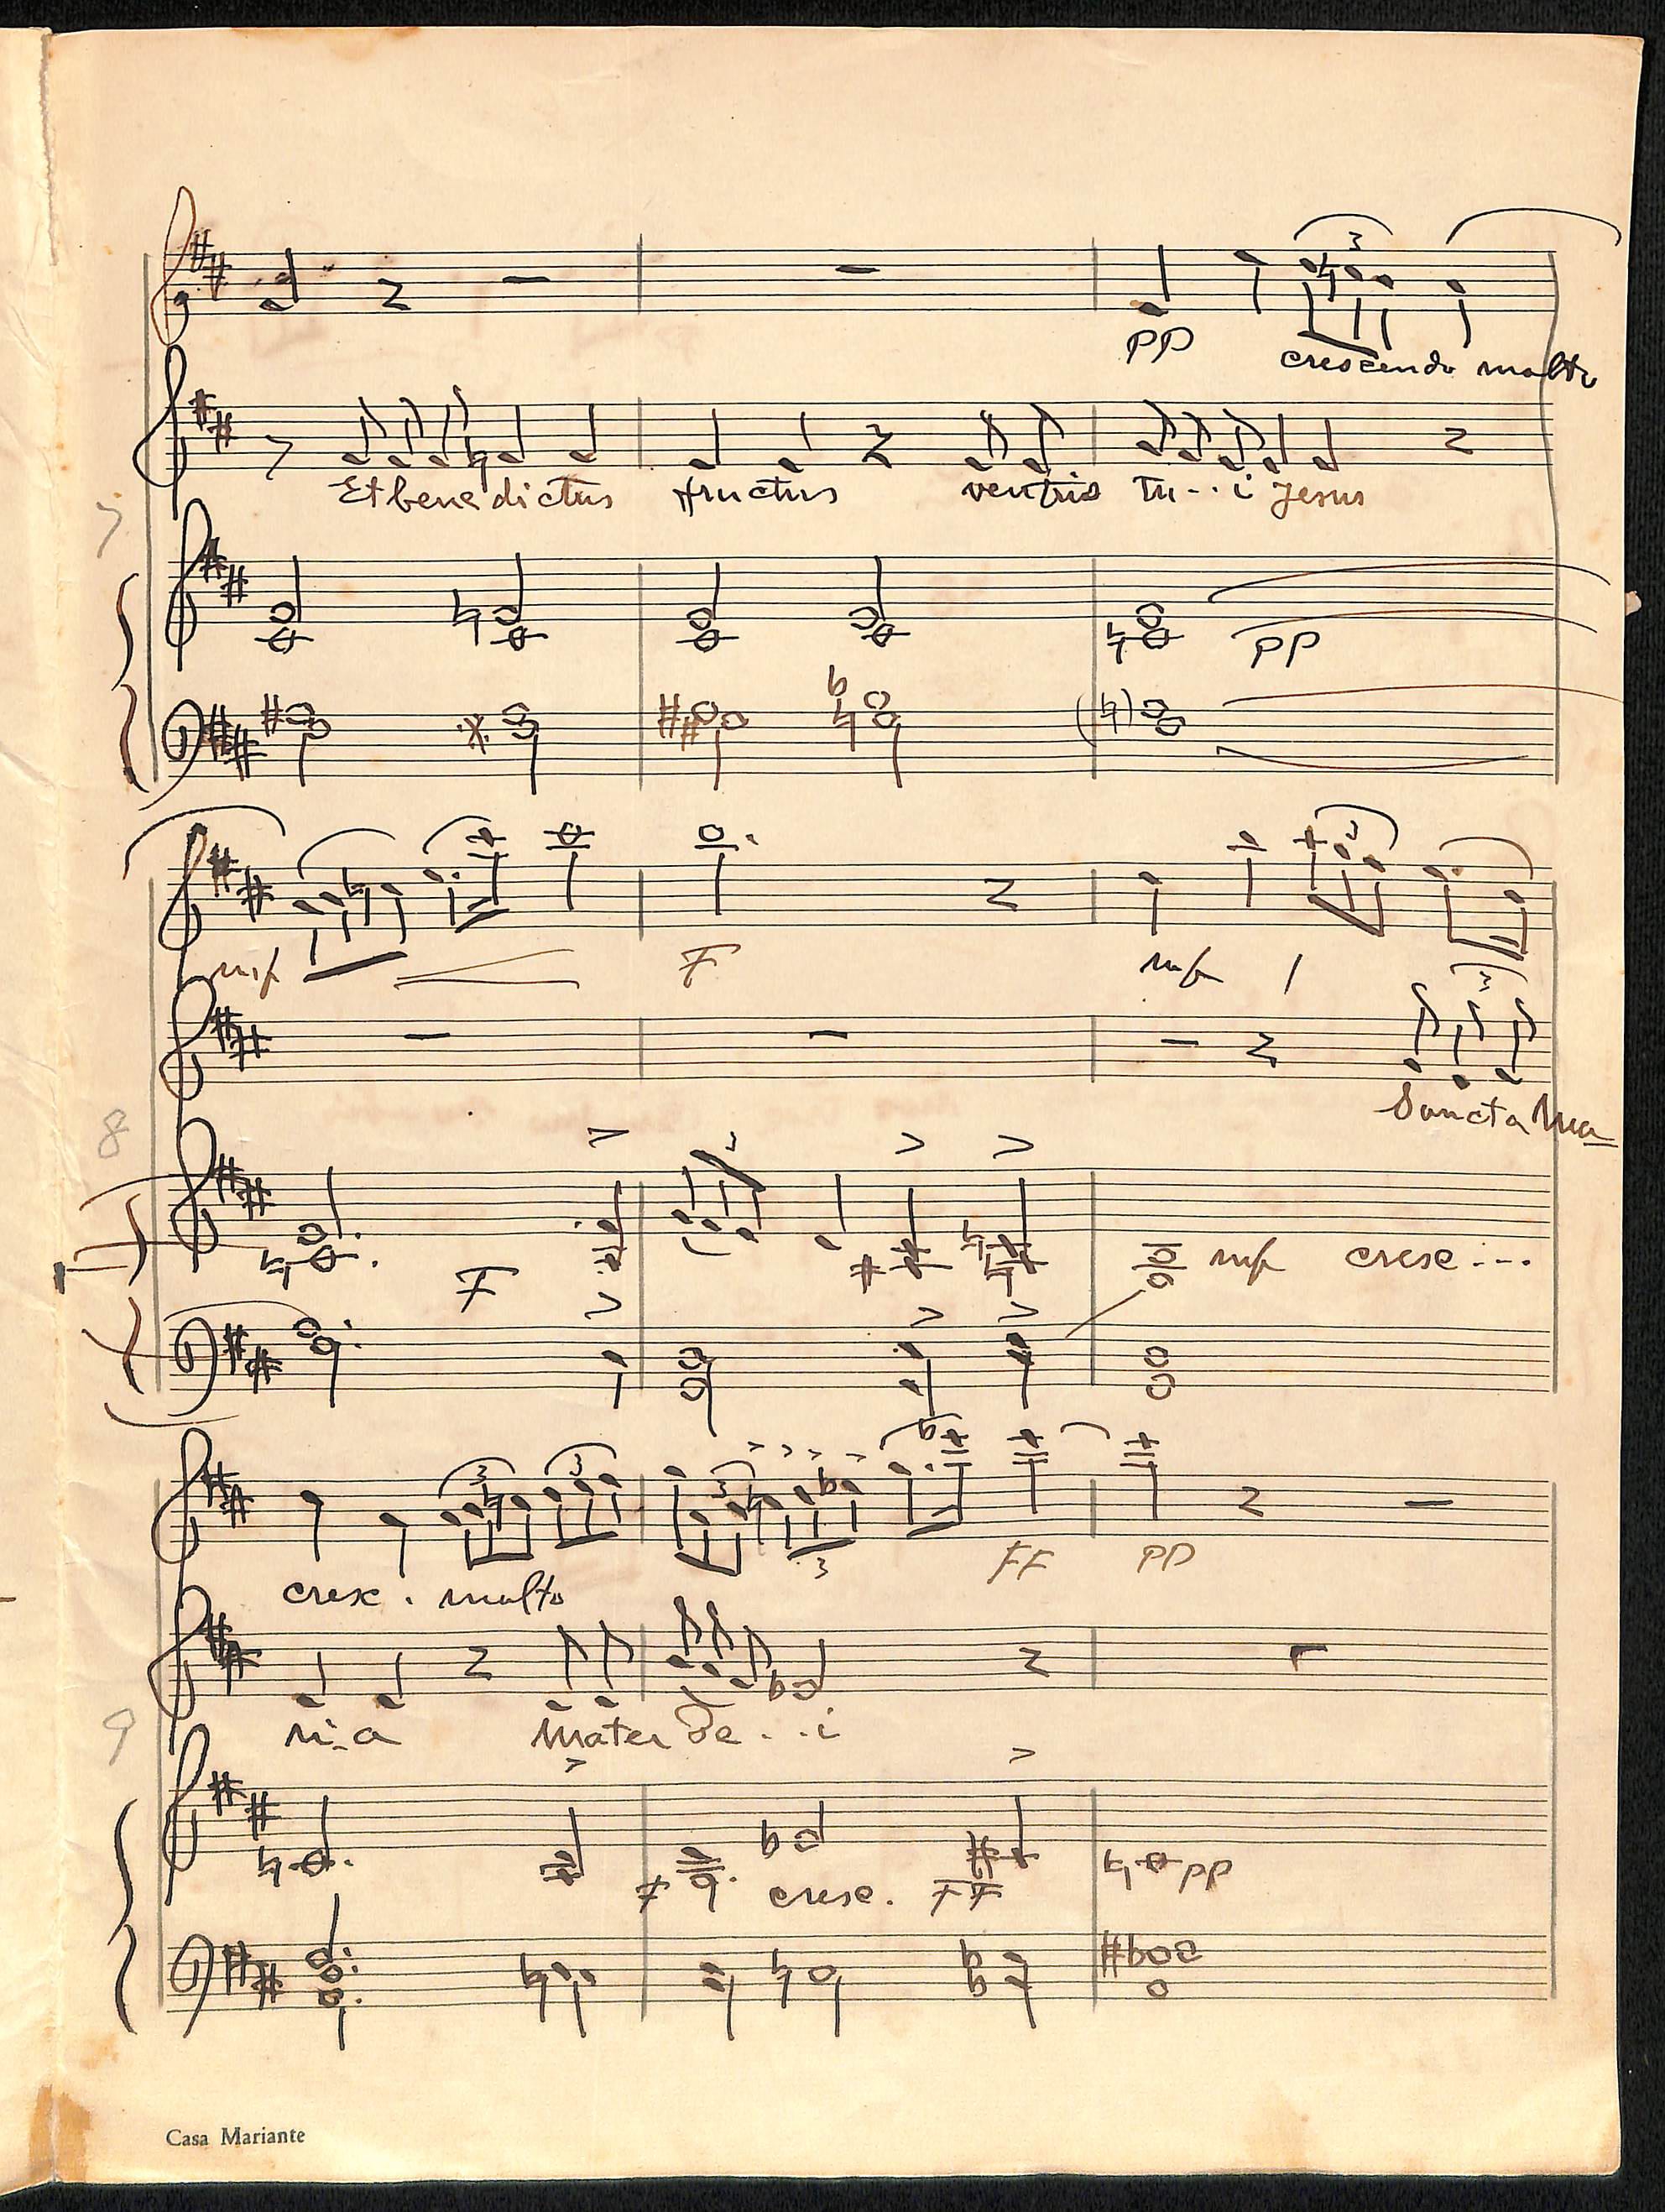 3
pp crescendo molto
Et benedictus fructus ventris Tu--i Jesus
7
pp
mf F mf
3
3
Sancta Ma
8
3
F mf cresc....
3 3 3
3
FF pp
cresc. molto
ri-a Mater De...i
9
F cresc. FF pp
Casa Mariante